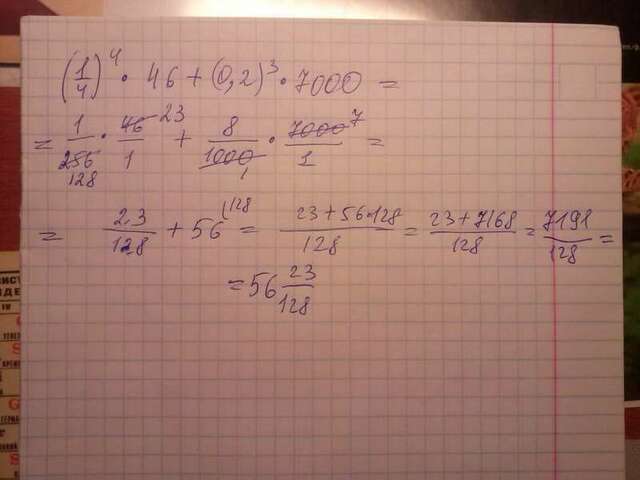 (1/4)^4 · 46 + (0,2)^3 · 7000 =
= 1/256 128 · 46 23/1 + 8/1000 1 · 7000 7/1 =
= 23/128 + 56^(128 = 23+56·128/128 = 23+7168/128 = 7191/128 =
= 56 23/128